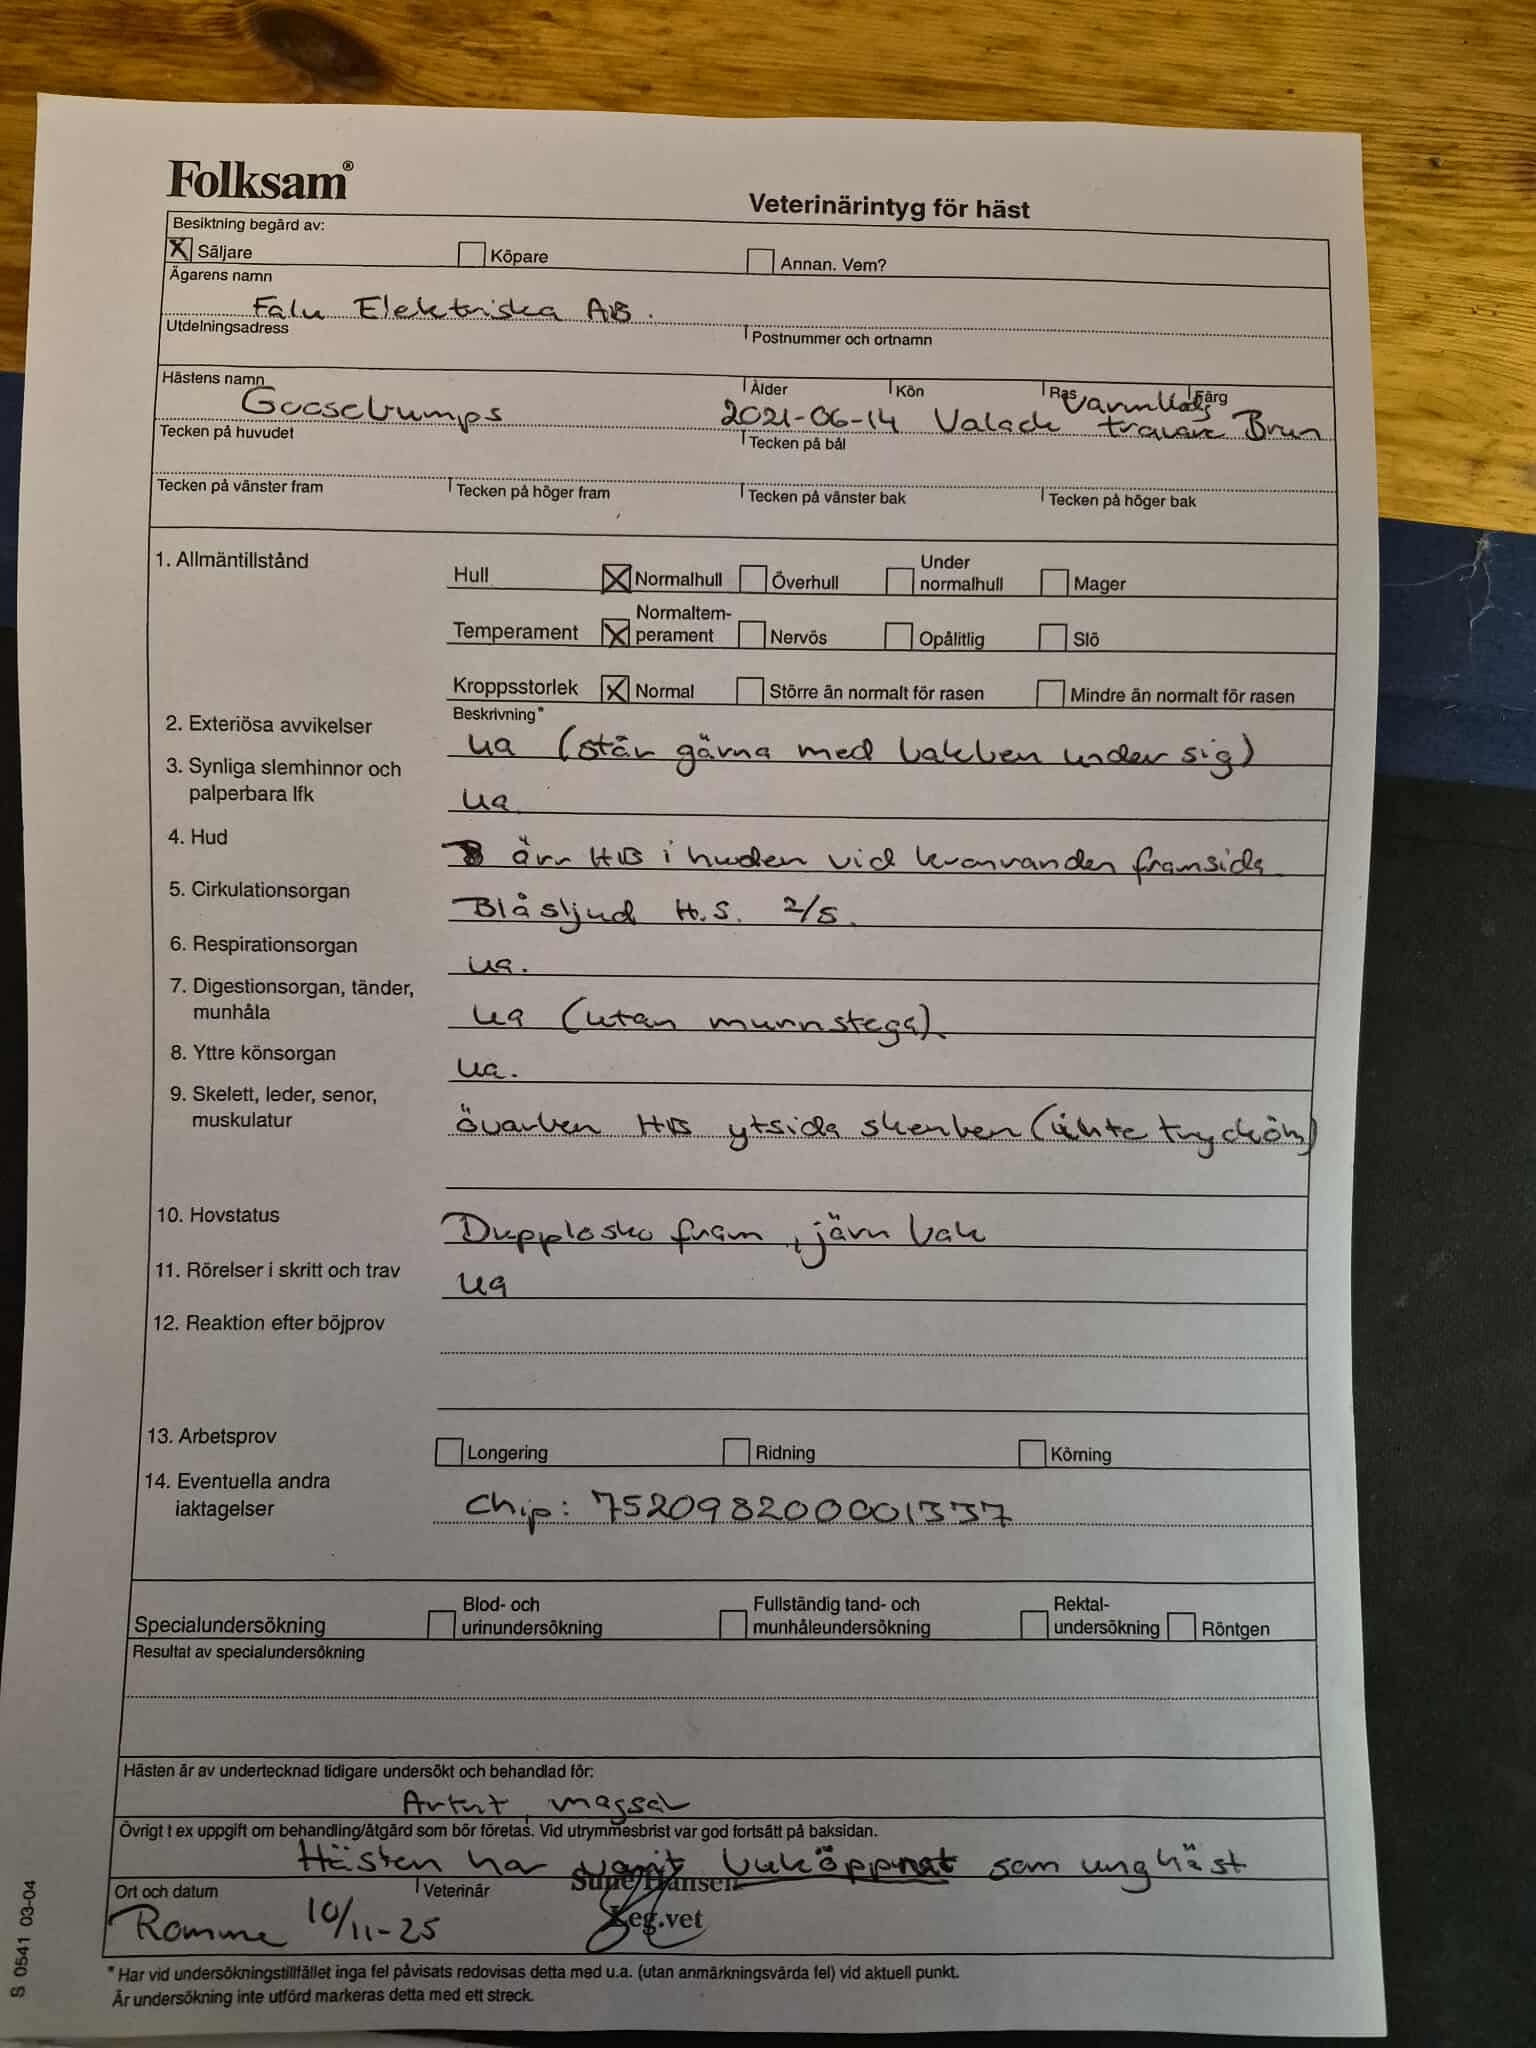 Folksam®
Veterinärintyg för häst
Besiktning begärd av:
X Säljare Köpare Annan. Vem?
Ägarens namn
Falu Elektriska AB.
Utdelningsadress Postnummer och ortnamn
Hästens namn Ålder Kön Ras Färg
Goosebumps 2021-06-14 Valack Varmblods travare Brun
Tecken på huvudet Tecken på bål
Tecken på vänster fram Tecken på höger fram Tecken på vänster bak Tecken på höger bak
1. Allmäntillstånd
Hull X Normalhull Överhull Under normalhull Mager
Temperament X Normaltem-perament Nervös Opålitlig Slö
Kroppsstorlek X Normal Större än normalt för rasen Mindre än normalt för rasen
Beskrivning*
2. Exteriösa avvikelser ua (står gärna med bakben under sig)
3. Synliga slemhinnor och
palperbara lfk ua
4. Hud ärr HB i huden vid kronranden framsida
5. Cirkulationsorgan Blåsljud H.S. 2/5.
6. Respirationsorgan ua.
7. Digestionsorgan, tänder,
munhåla ua (utan munnstega)
8. Yttre könsorgan ua.
9. Skelett, leder, senor,
muskulatur överben HB ytsida skenben (inte tryköm)
10. Hovstatus Dupplosko fram, järn bak
11. Rörelser i skritt och trav ua
12. Reaktion efter böjprov
13. Arbetsprov Longering Ridning Körning
14. Eventuella andra
iaktagelser Chip: 752098200001337
Specialundersökning Blod- och urinundersökning Fullständig tand- och munhåleundersökning Rektal-undersökning Röntgen
Resultat av specialundersökning
Hästen är av undertecknad tidigare undersökt och behandlad för:
Artrit, magsår
Övrigt t ex uppgift om behandling/åtgärd som bör företas. Vid utrymmesbrist var god fortsätt på baksidan.
Hästen har varit buköppnat som unghäst
Ort och datum Veterinär Sune Hansen
Romme 10/11-25 Leg.vet
* Har vid undersökningstillfället inga fel påvisats redovisas detta med u.a. (utan anmärkningsvärda fel) vid aktuell punkt.
Är undersökning inte utförd markeras detta med ett streck.
S 0541 03-04